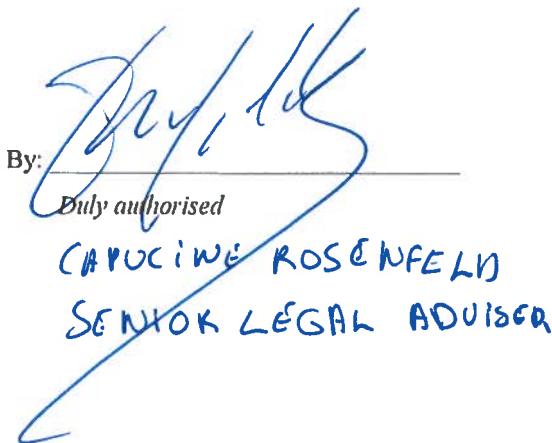 By:
Duly authorised
CAPUCINE ROSENFELD
SENIOR LEGAL ADVISER